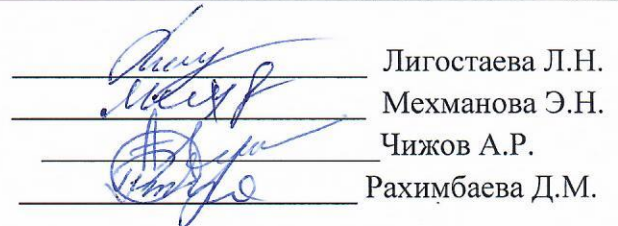 Лигостаева Л.Н.
Мехманова Э.Н.
Чижов А.Р.
Рахимбаева Д.М.